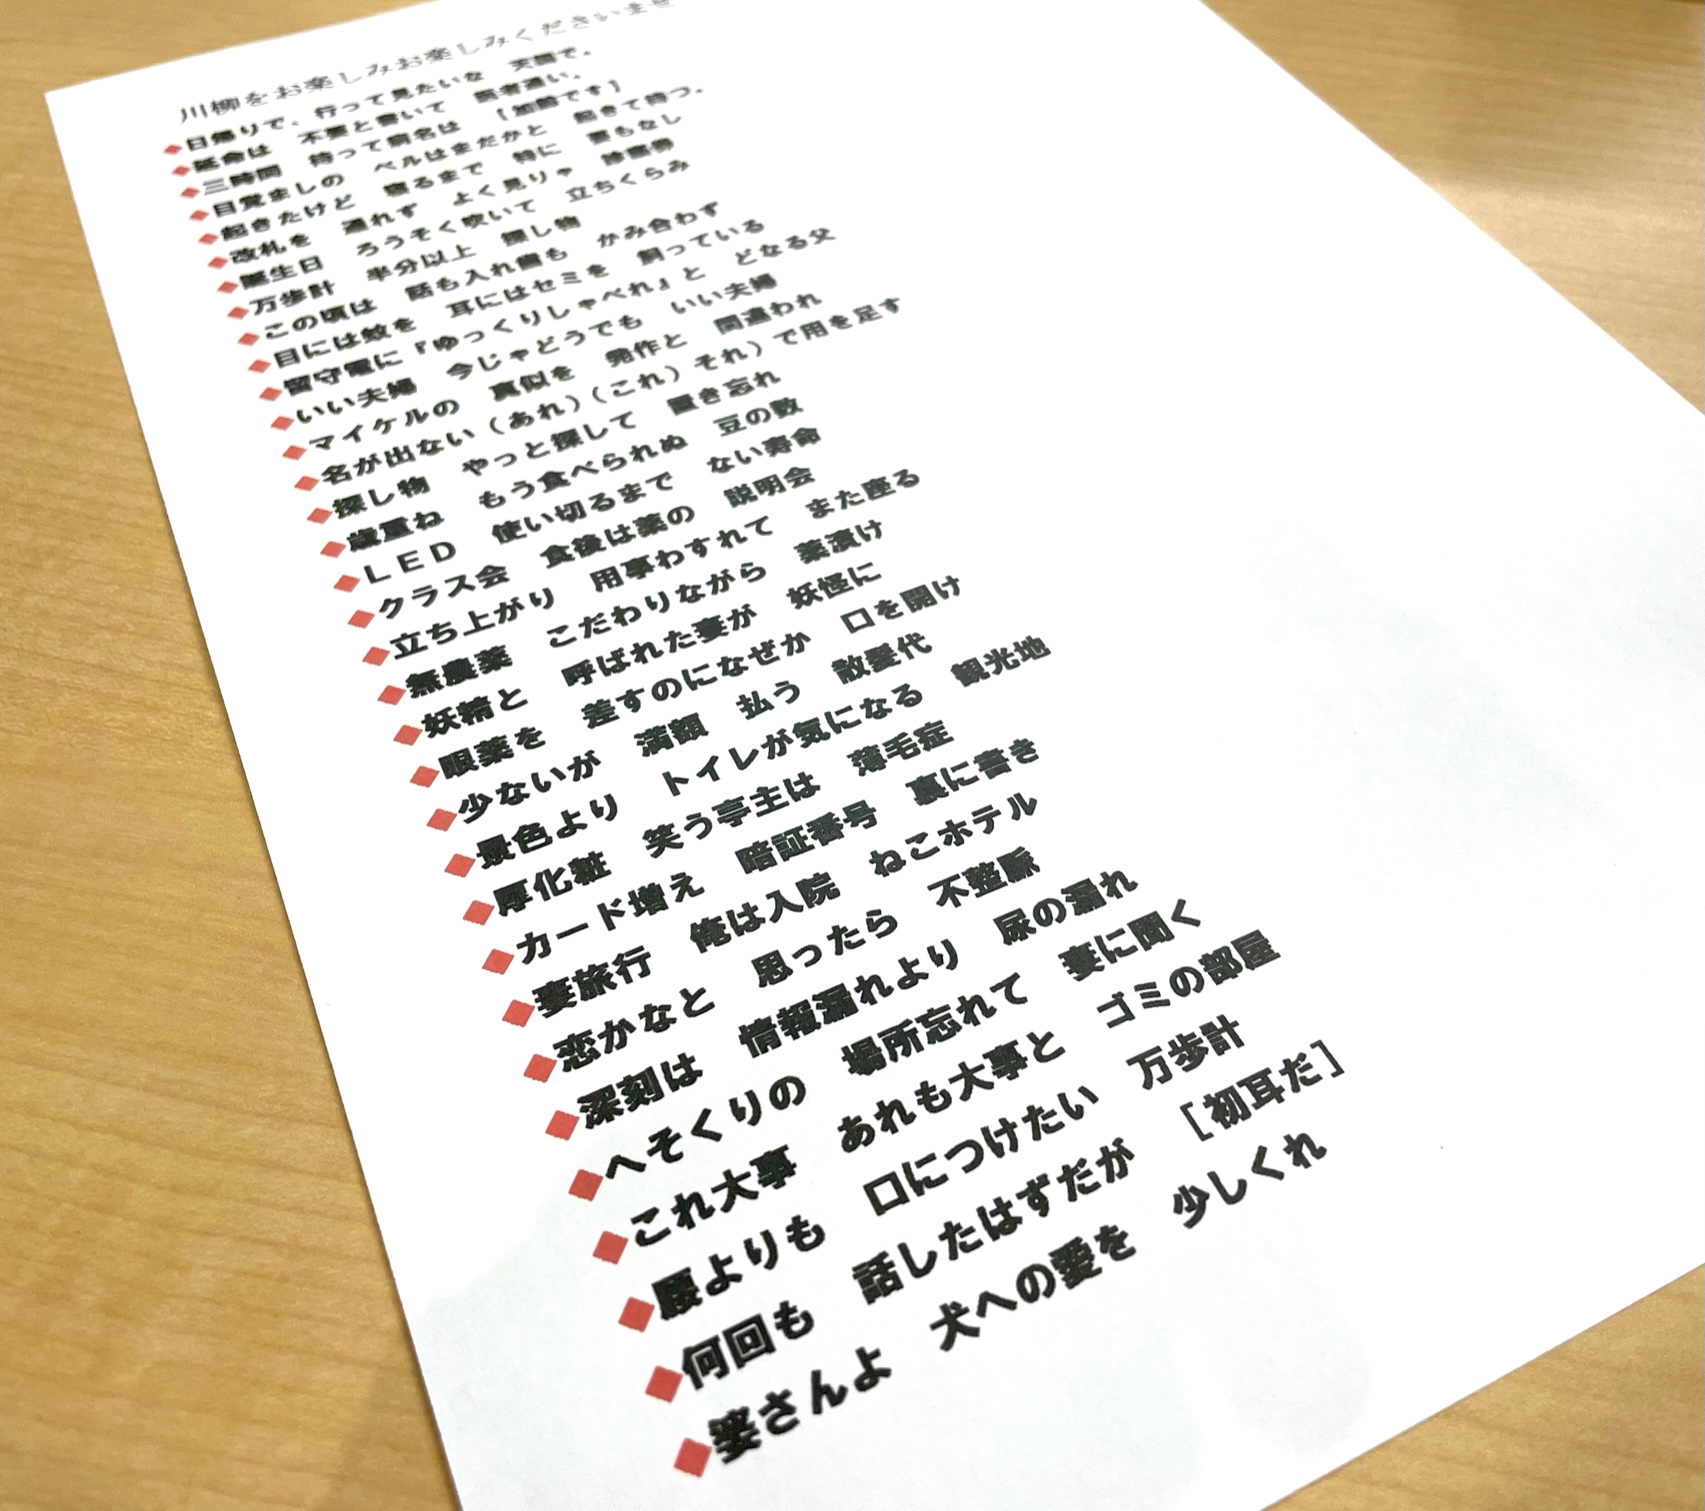 川柳をお楽しみお楽しみくださいませ
◆日帰りで、行って見たいな　天国で。
◆延命は　不要と書いて　医者通い。
◆三時間　待って病名は　［加齢です］
◆目覚ましの　ベルはまだかと　起きて待つ。
◆起きたけど　寝るまで　特に　要もなし
◆改札を　通れず　よく見りゃ　診察券
◆誕生日　ろうそく吹いて　立ちくらみ
◆万歩計　半分以上　探し物
◆この頃は　話も入れ歯も　かみ合わず
◆目には蚊を　耳にはセミを　飼っている
◆留守電に『ゆっくりしゃべれ』と　どなる父
◆いい夫婦　今じゃどうでも　いい夫婦
◆マイケルの　真似を　発作と　間違われ
◆名が出ない（あれ）（これ）それ）で用を足す
◆探し物　やっと探して　置き忘れ
◆歳重ね　もう食べられぬ　豆の数
◆ＬＥＤ　使い切るまで　ない寿命
◆クラス会　食後は薬の　説明会
◆立ち上がり　用事わすれて　また座る
◆無農薬　こだわりながら　薬漬け
◆妖精と　呼ばれた妻が　妖怪に
◆眼薬を　差すのになぜか　口を開け
◆少ないが　満額　払う　散髪代
◆景色より　トイレが気になる　観光地
◆厚化粧　笑う亭主は　薄毛症
◆カード増え　暗証番号　裏に書き
◆妻旅行　俺は入院　ねこホテル
◆恋かなと　思ったら　不整脈
◆深刻は　情報漏れより　尿の漏れ
◆へそくりの　場所忘れて　妻に聞く
◆これ大事　あれも大事と　ゴミの部屋
◆腰よりも　口につけたい　万歩計
◆何回も　話したはずだが　［初耳だ］
◆婆さんよ　犬への愛を　少しくれ